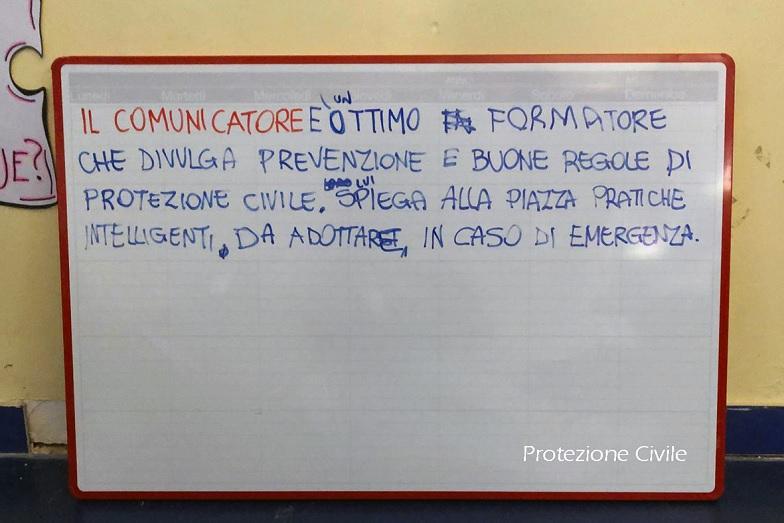 Lunedì Martedì Mercoledì Venerdì Sabato Domenica
IL COMUNICATORE E UN OTTIMO FORMATORE
CHE DIVULGA PREVENZIONE E BUONE REGOLE DI
PROTEZIONE CIVILE. LUI SPIEGA ALLA PIAZZA PRATICHE
INTELLIGENTI, DA ADOTTARE, IN CASO DI EMERGENZA.
UE?
Protezione Civile